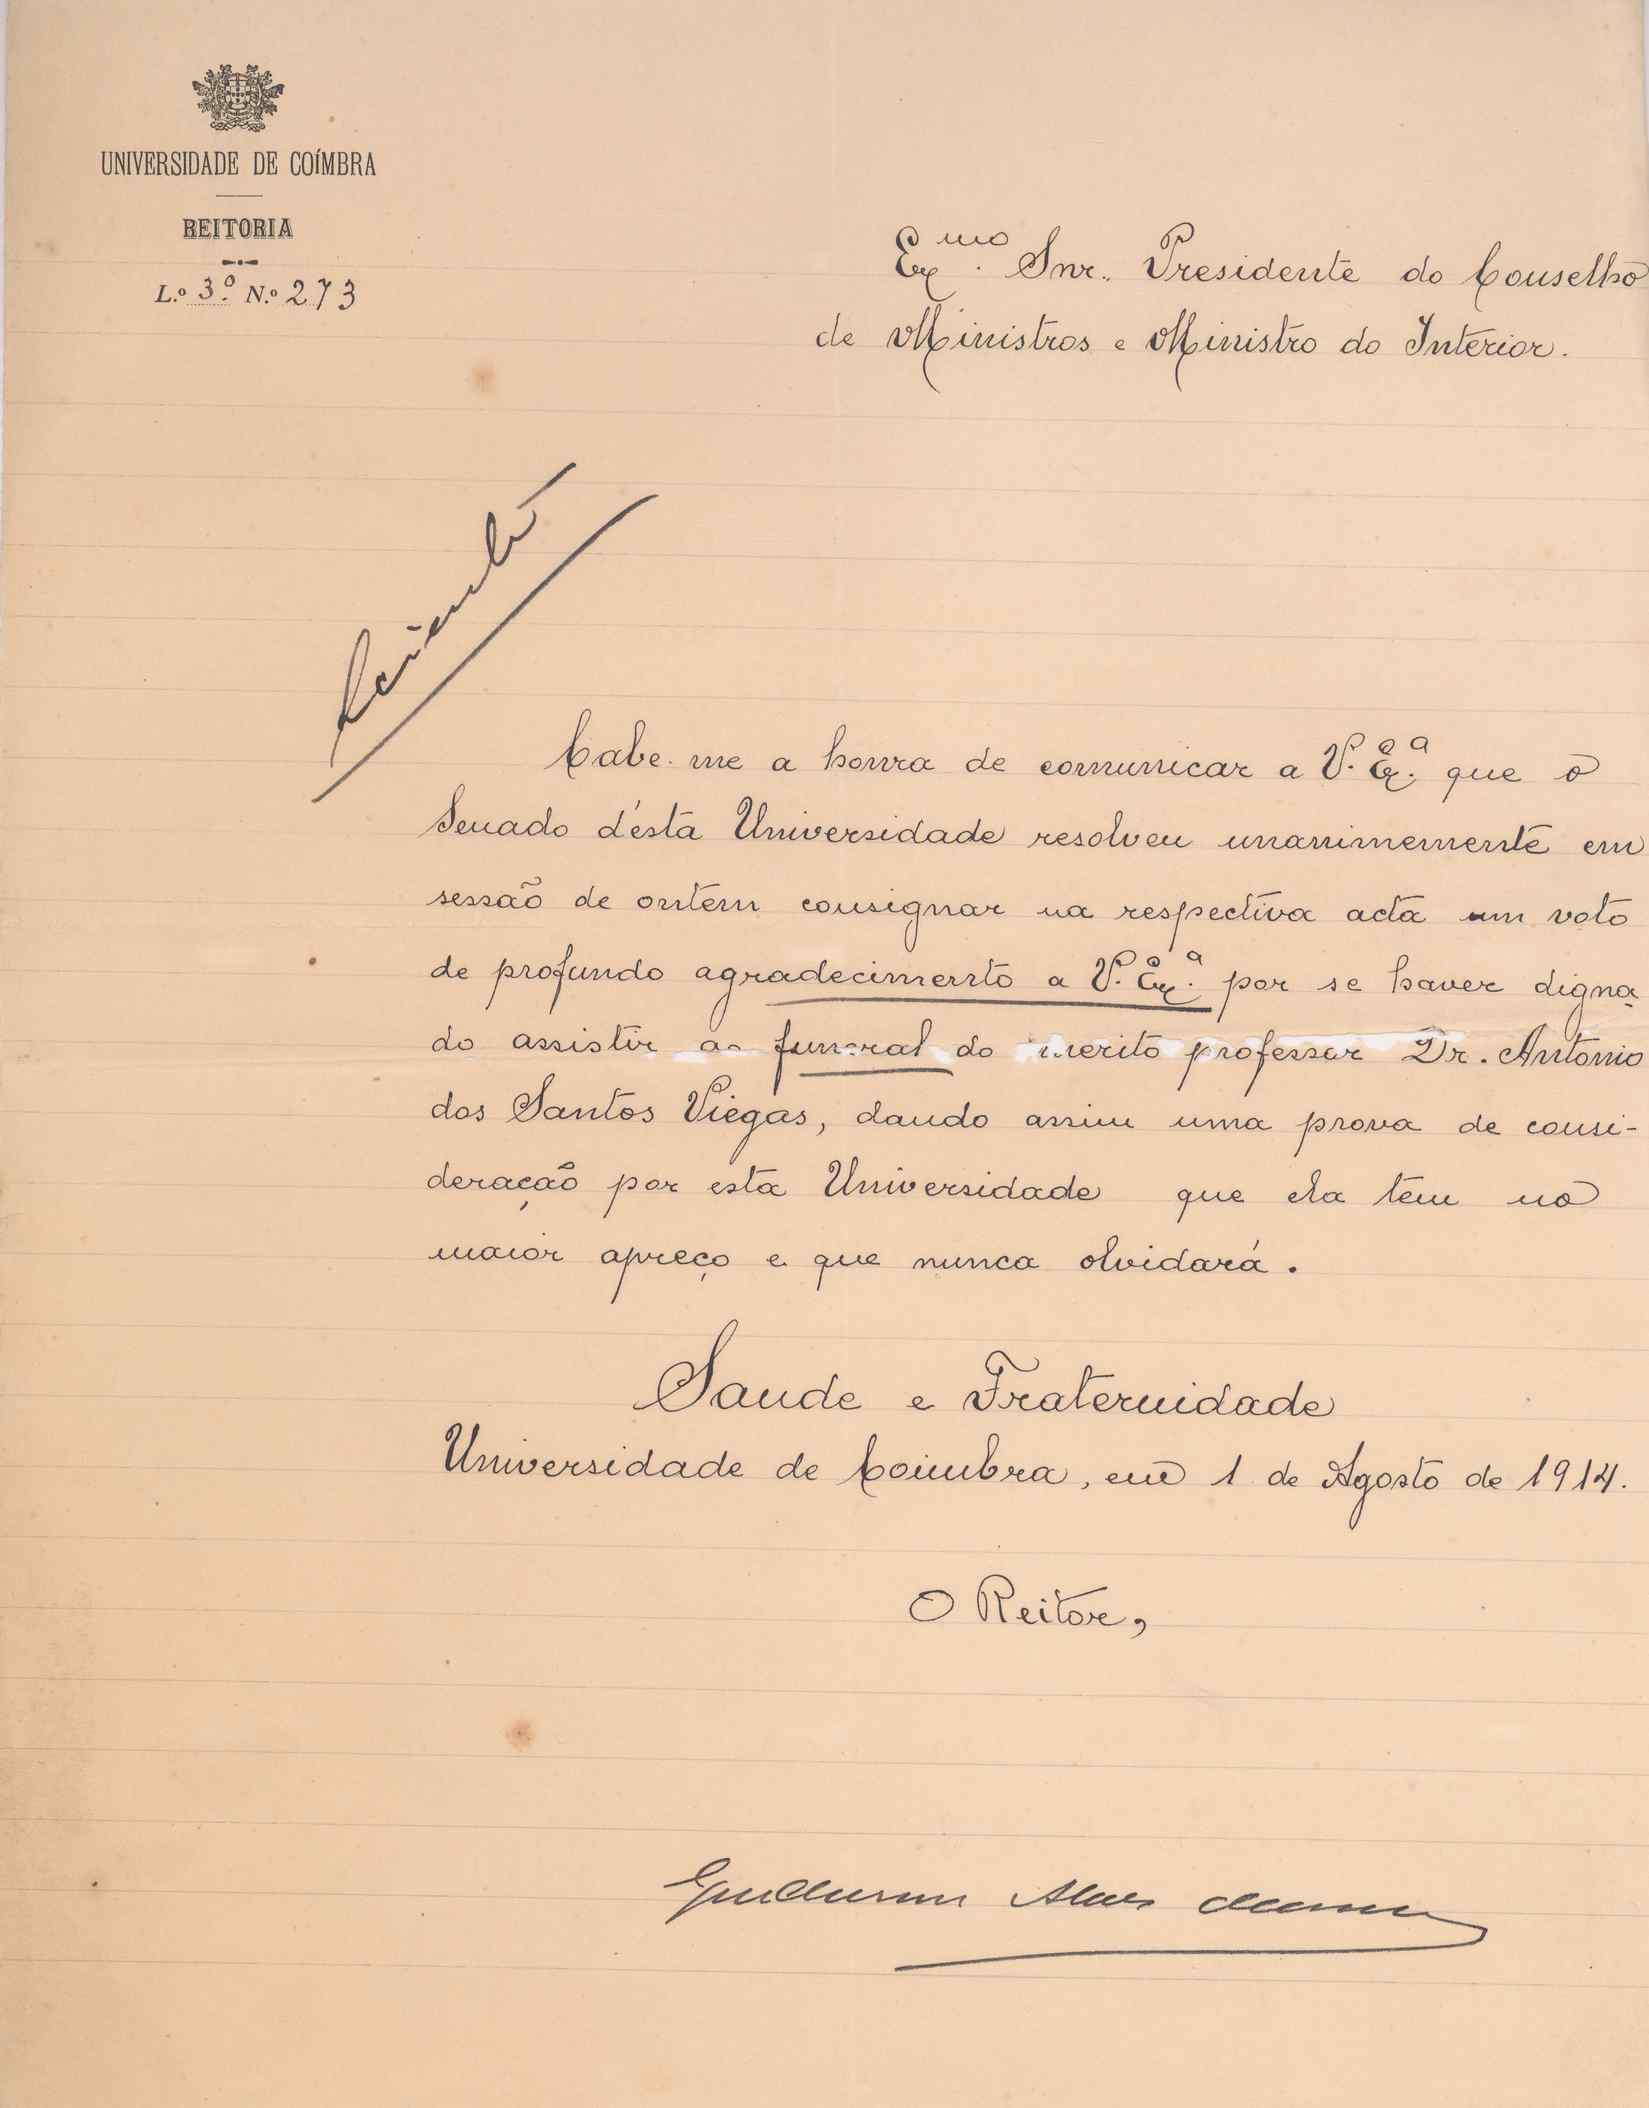 UNIVERSIDADE DE COÍMBRA
REITORIA
L.º 3º. N.º 273
Exmo. Snr. Presidente do Conselho
de Ministros e Ministro do Interior.
Sciente
Cabe-me a honra de comunicar a V. Exª. que o
Senado d'ésta Universidade resolveu unanimemente em
sessão de ontem consignar na respectiva acta um voto
de profundo agradecimento a V. Exª. por se haver digna
do assistir ao funeral do professor Dr. Antonio
dos Santos Viegas, dando assim uma prova de consi-
deração por esta Universidade que ela tem no
maior apreço e que nunca olvidará.
Saude e Fraternidade
Universidade de Coimbra, em 1 de Agosto de 1914.
O Reitor,
Guilherme Alves Moreira